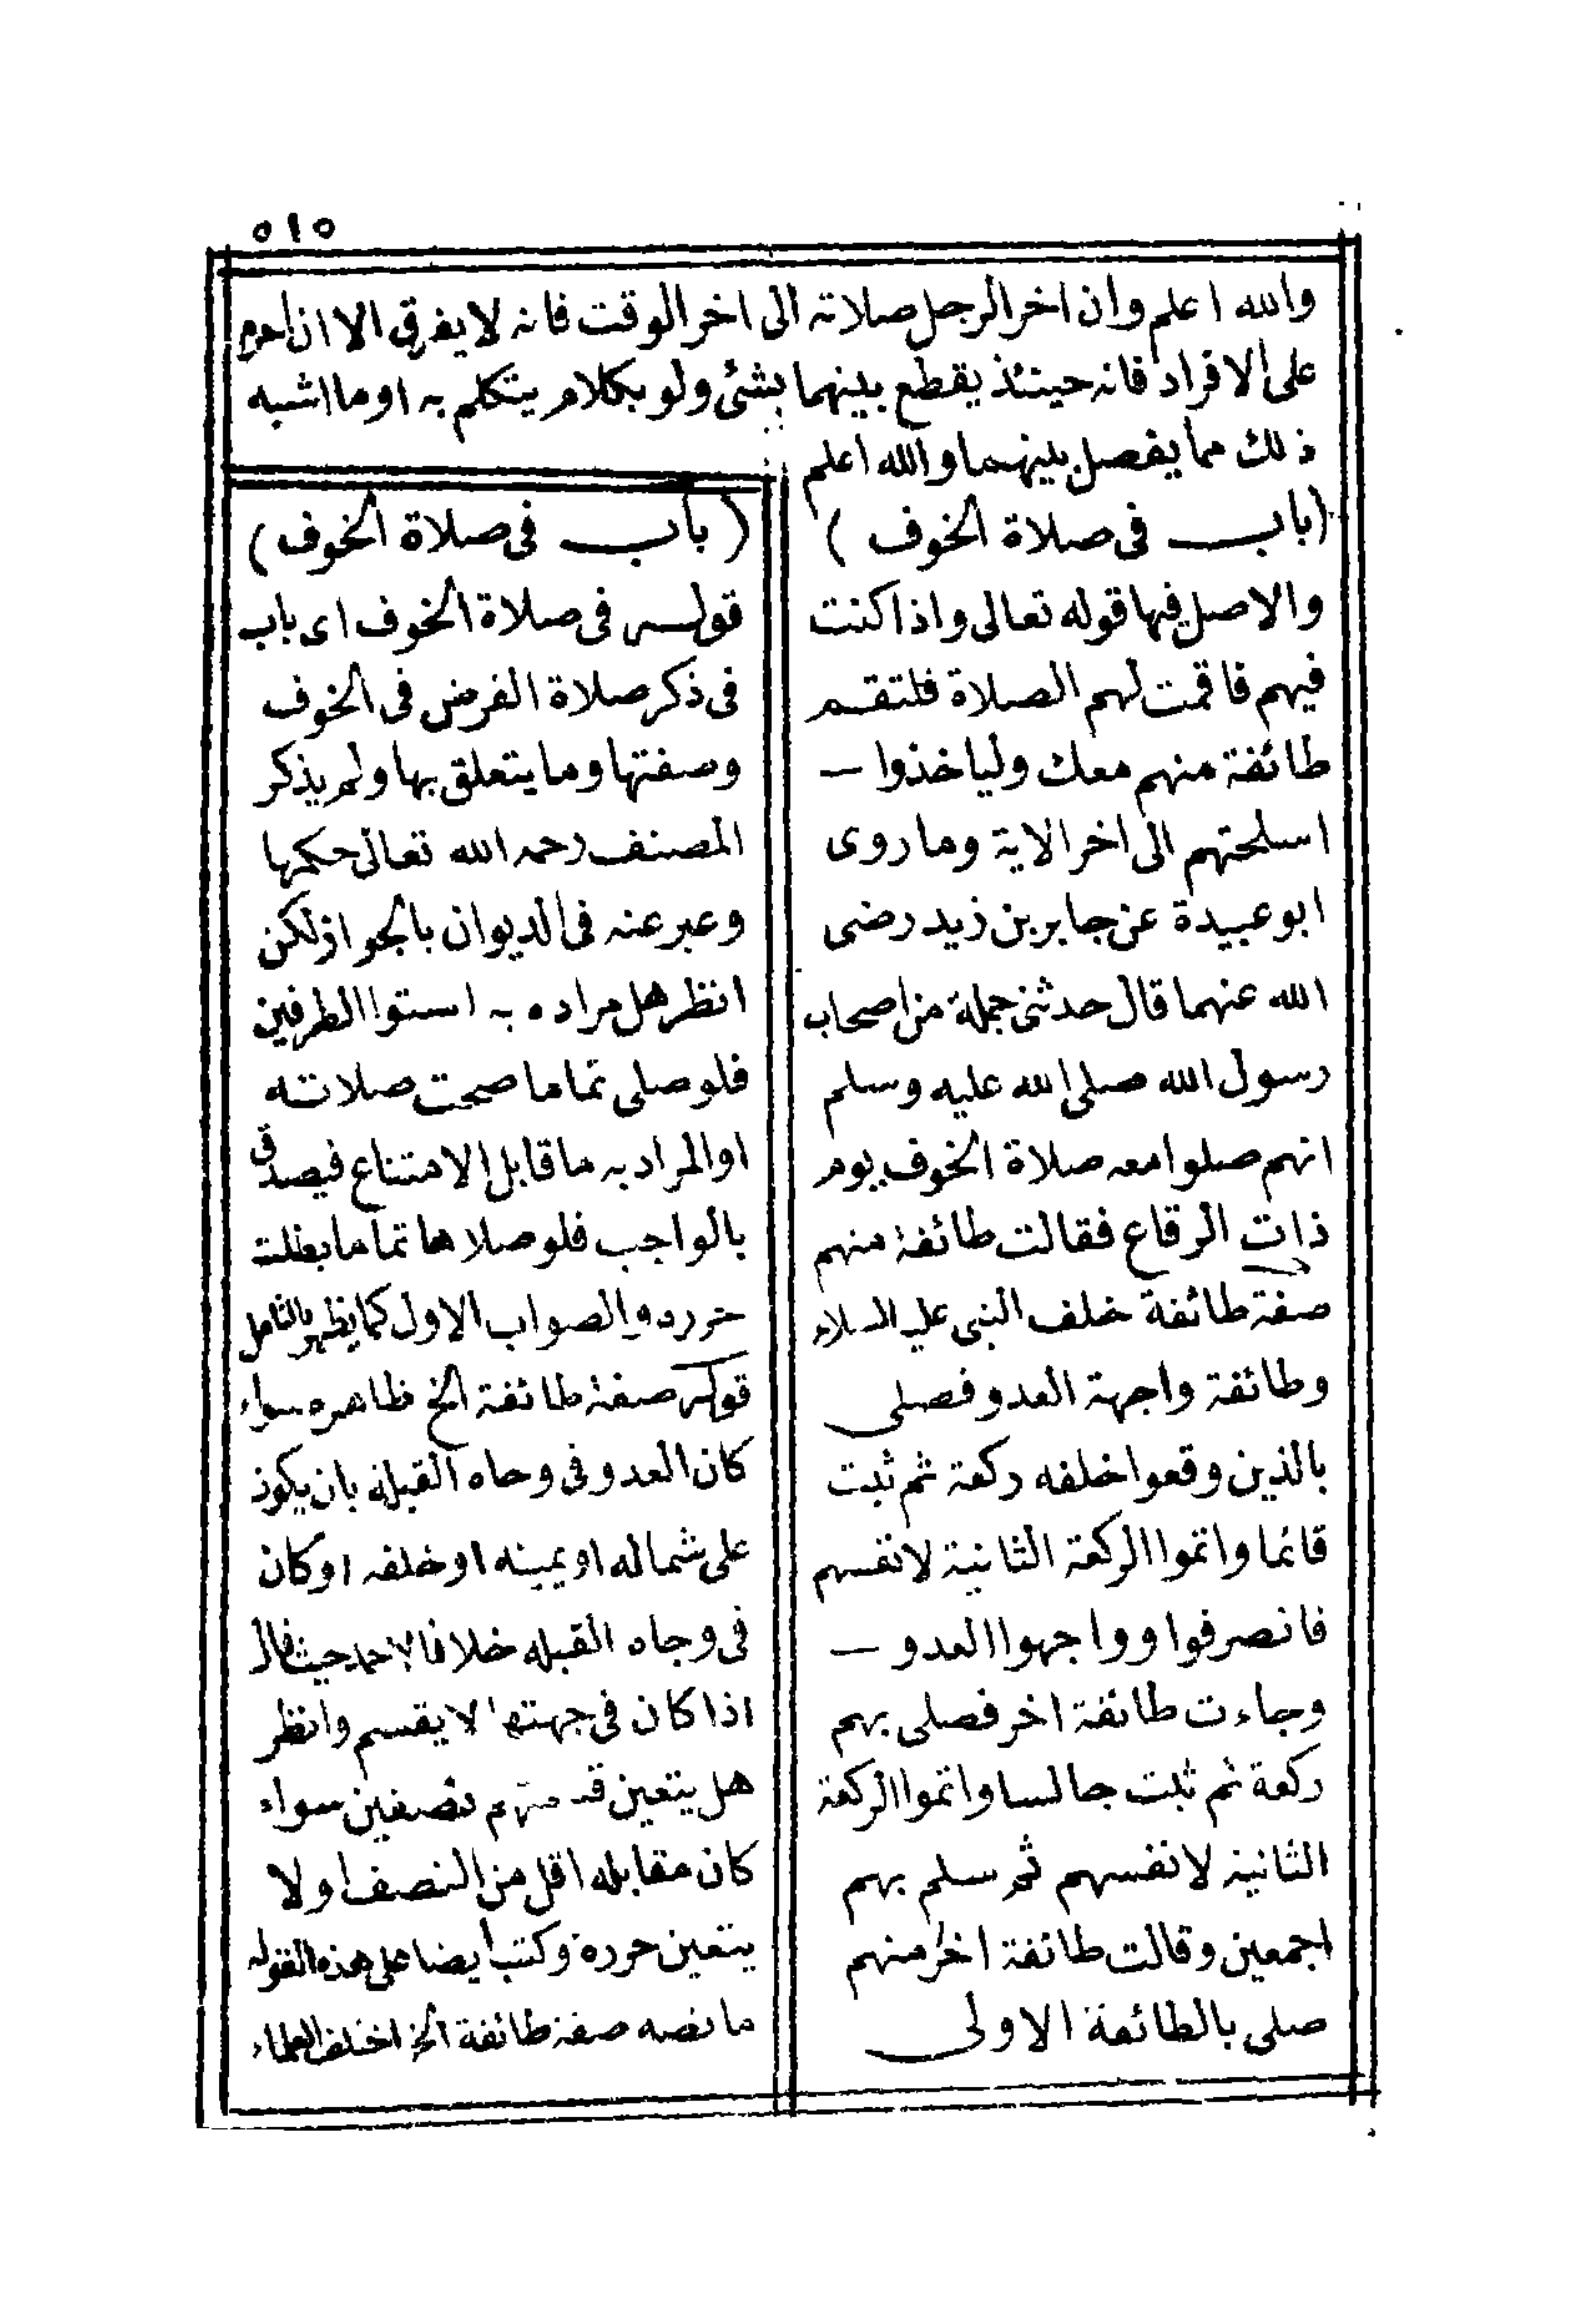 ٥١٥
والله اعلم وان اخر الرجل صلاته الى اخر الوقت فانه لا يفرق الا ان احرم
على الافراد فانه حينئذ يقطع بينهما بشئ ولو بكلام يتكلم به او ما اشبه
ذلك مما يفصل بينهما والله اعلم
(باب في صلاة الخوف)
والاصل فيها قوله تعالى واذا كنت
فيهم فاقمت لهم الصلاة فلتقم
طائفة منهم معك ولياخذوا –
اسلحتهم الى اخر الاية وما روى
ابو عبيدة عن جابر بن زيد رضى
الله عنهما قال حدثنى جملة من اصحاب
رسول الله صلى الله عليه وسلم
انهم صلوا معه صلاة الخوف يوم
ذات الرقاع فقالت طائفة منهم
صفة طائفة خلف النبى عليه السلام
وطائفة واجهة العدو فصلى
بالذين وقعوا خلفه ركعة ثم ثبت
قائما واتموا الركعة الثانية لانفسهم
فانصرفوا وواجهوا العدو –
وجاءت طائفة اخر فصلى بهم
ركعة ثم ثبت جالسا واتموا الركعة
الثانية لانفسهم ثم سلم بهم
اجمعين وقالت طائفة اخر منهم
صلى بالطائفة الاولى
(باب في صلاة الخوف)
قوله فى صلاة الخوف اى باب
فى ذكر صلاة الفرض فى الخوف
وصفتها وما يتعلق بها ولم يذكر
المصنف رحمه الله تعالى حكمها
وعبر عنه فى الديوان بالجواز لكن
انظر هل مراده به استوا الطرفين
فلو صلى تماما صحت صلاته
او المراد به ما قابل الامتناع فيصدق
بالواجب فلو صلاها تماما بطلت
حرره والصواب الاول كما يظهر بالتامل
قوله صفة طائفة الخ ظاهره سواء
كان العدو فى وجاه القبلة بان يكون
على شماله او يمينه او خلفه او كان
فى وجاه القبله خلافا لاحمد حيث قال
اذا كان فى جهتها لا يقسم وانظر
هل يتعين نصفين سواء
كان مقابله اقل من النصف او لا
يتعين حرره وكتب ايضا على هذه القوله
ما نصه صفة طائفة الخ اختلف العلماء